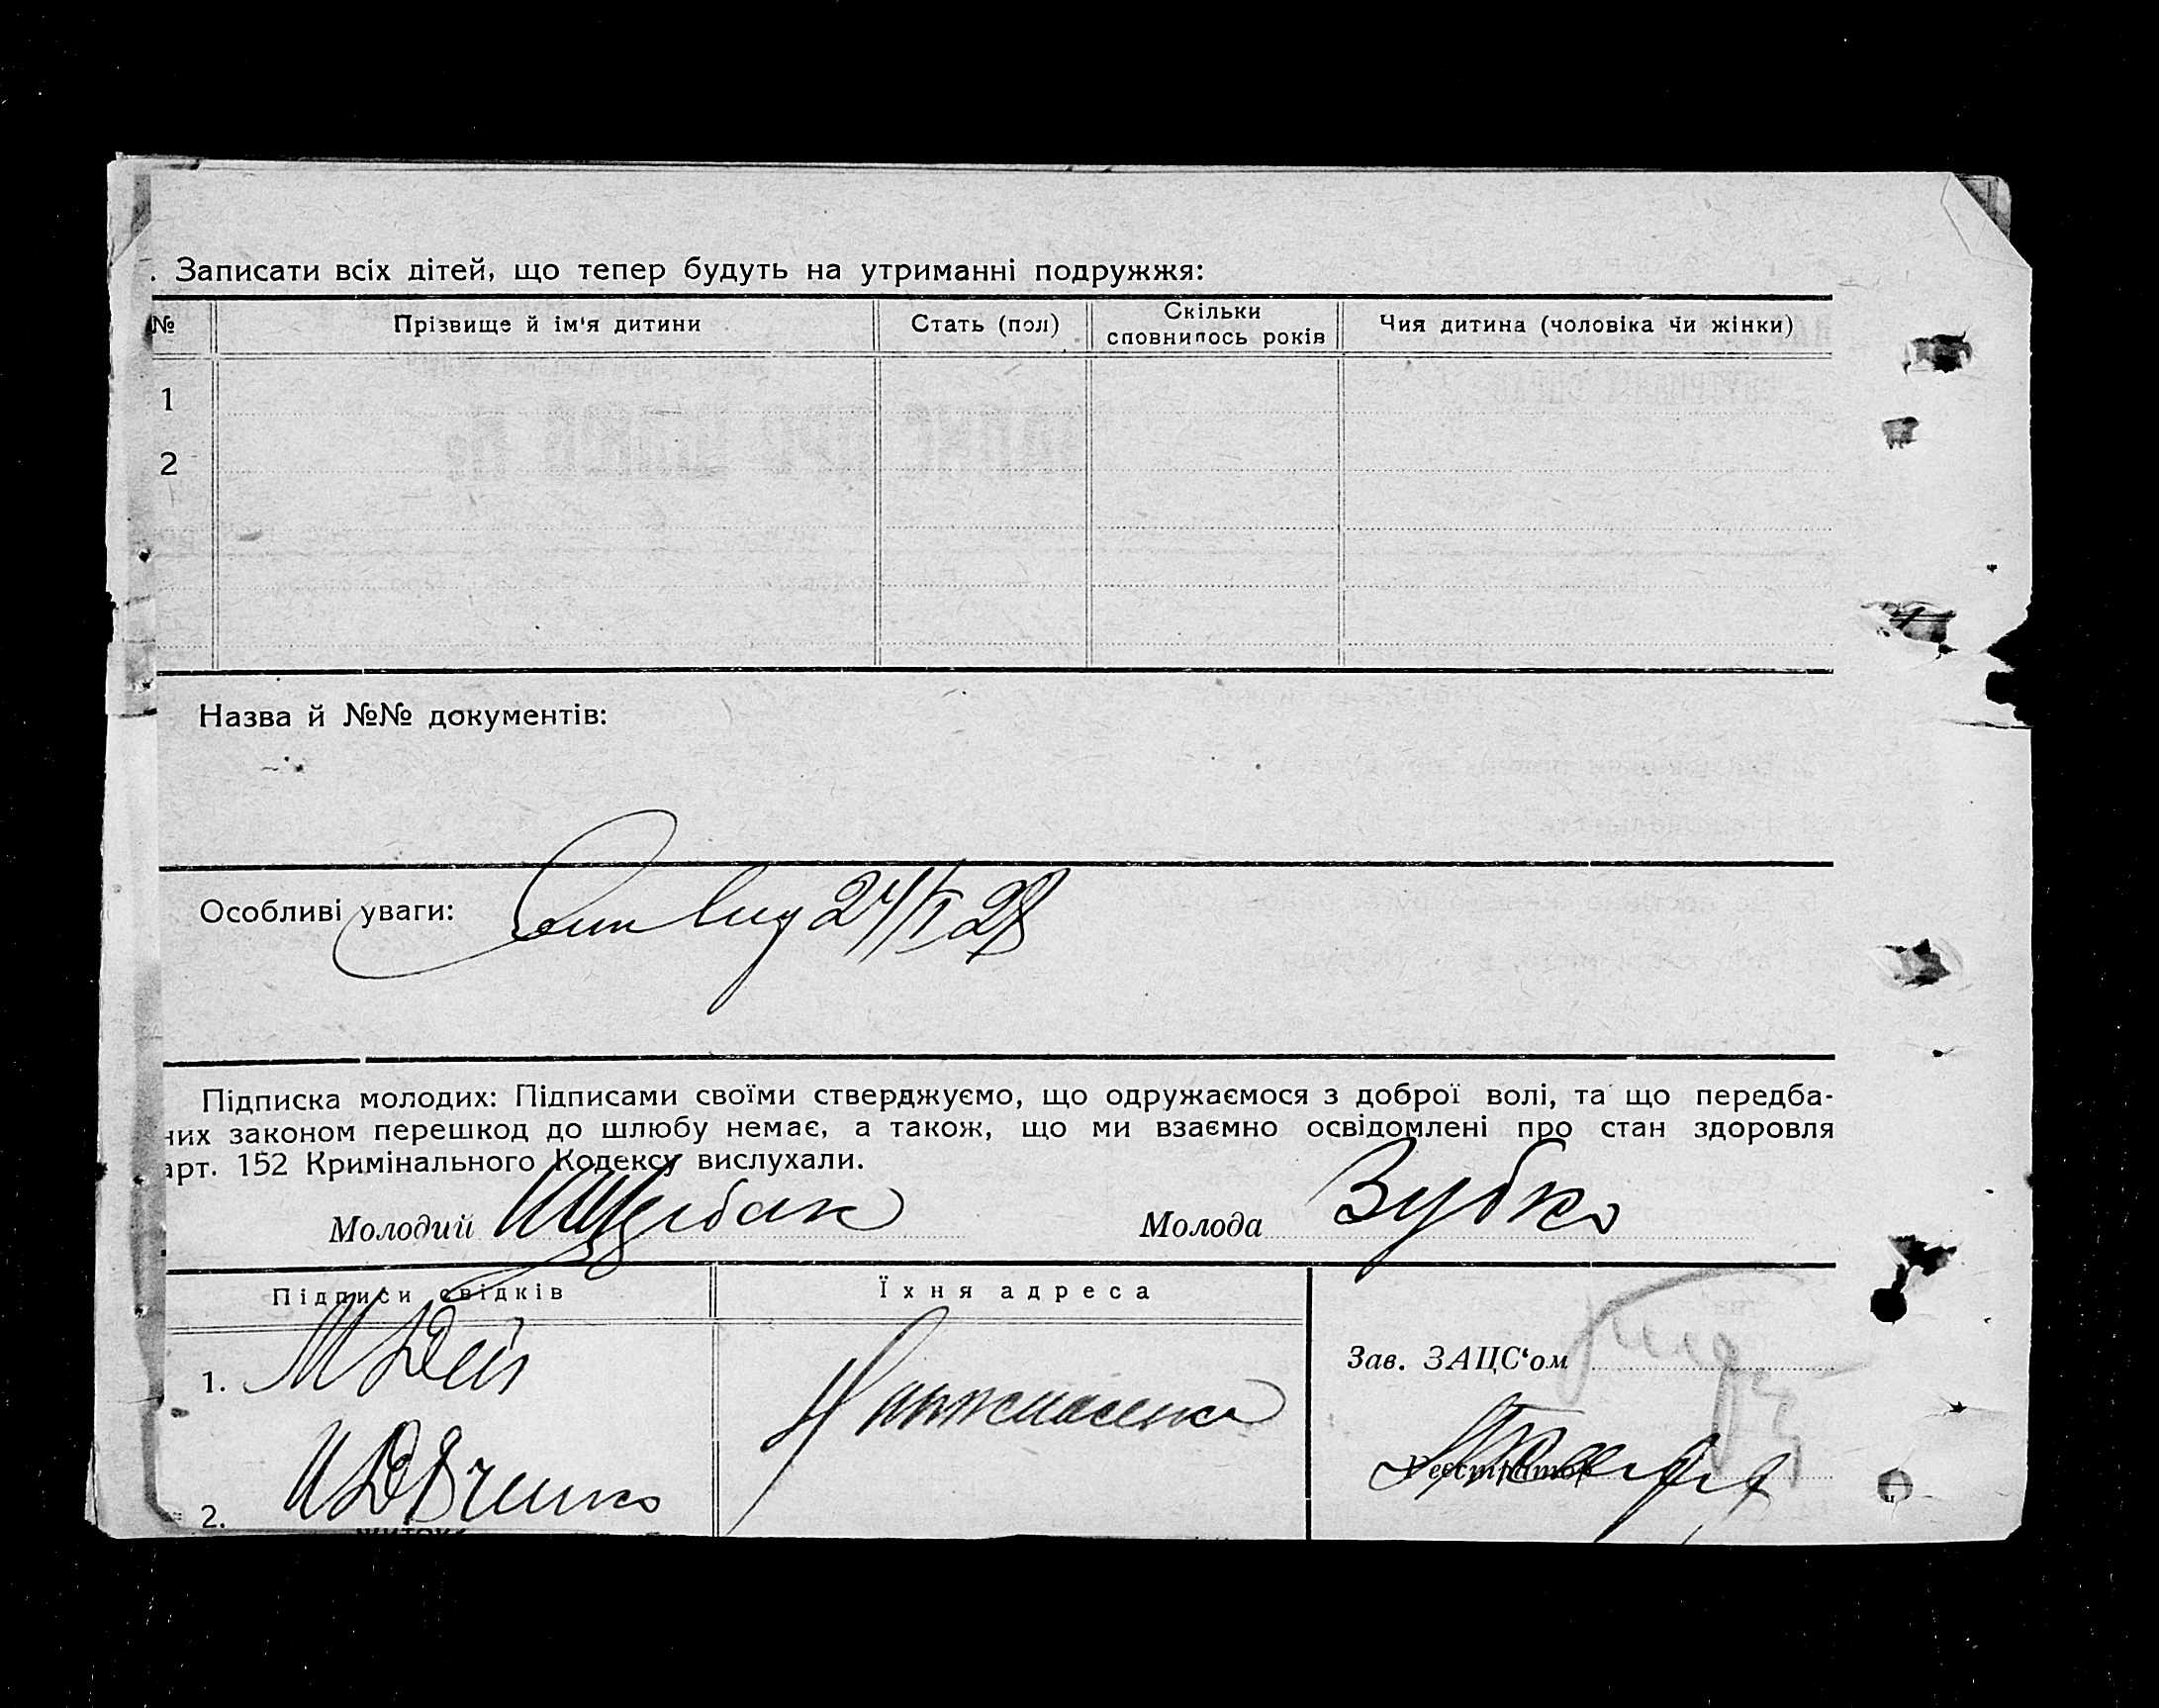 . Записати всіх дітей, що тепер будуть на утриманні подружжя:
№ Прізвище й ім'я дитини Стать (пол) Скільки сповнилось років Чия дитина (чоловіка чи жінки)
1
2
Назва й №№ документів:
Особливі уваги: 24/I 28
Підписка молодих: Підписами своїми стверджуємо, що одружаємося з доброї волі, та що передба-
них законом перешкод до шлюбу немає, а також, що ми взаємно освідомлені про стан здоровля
арт. 152 Кримінального Кодексу вислухали.
Молодий Щербак Молода Зубко
Підписи свідків Їхня адреса
Зав. ЗАЦС'ом
1.
Реєстратор
2.